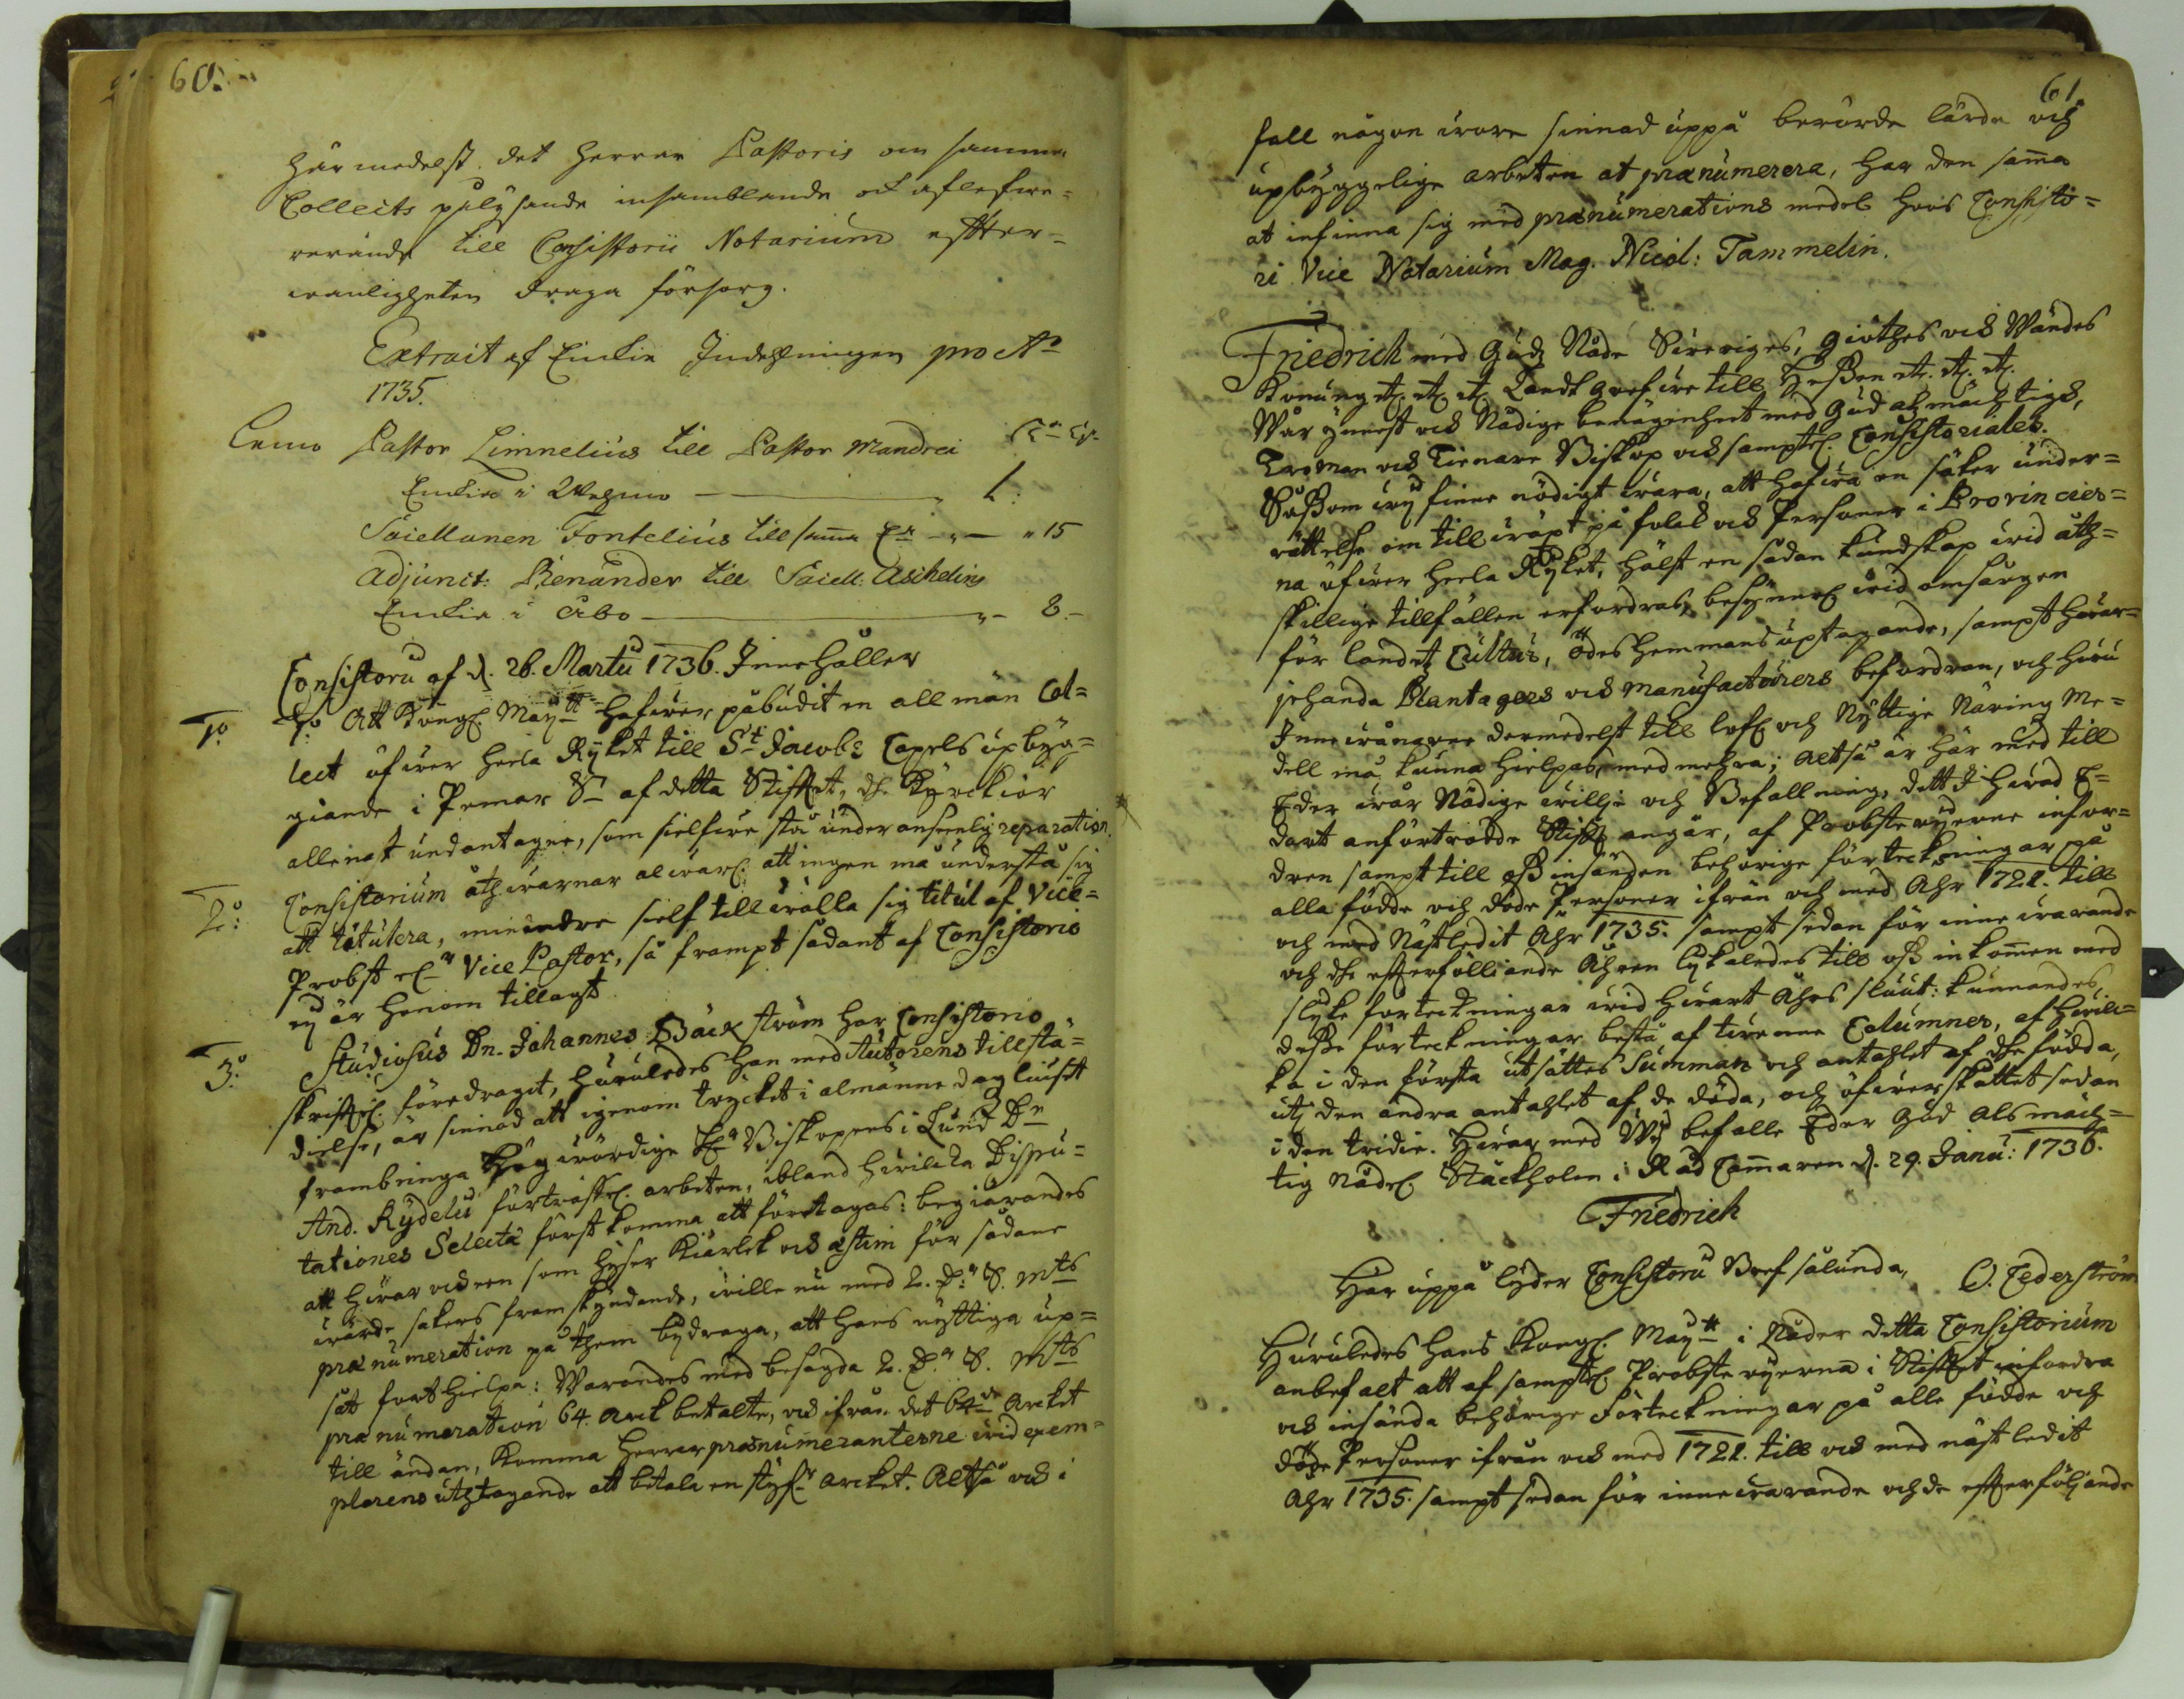 60.
Härmedelst det Herrar Pastoris om samma
Collects pålysande insamblande och aflefwe=
rerande till Consistorii Notarium effter=
wanligheten draga försorg.
Extrait af Enckie Indehlningen pro A:o
1735.
Lemo Pastor Limnelius till Pastor Mandrei
Enckia i Wehmo — " 1:
Sacellanen Fontelius till samma E:a — " — " 15
Adjunct: Rienander till Sacell: Aschelins
Enckia i Åbo — " — 8.—
Consistorii af d. 26. Martii 1736. Innehåller
1:o 1:o Att Kongl. May:tt hafwer påbudit en allmän Col=
lect öfwer heela Ryket till S:t Jacobs Capels upbyg=
giande i Pemar S:n af detta Stifftet, dhe Kyrckior
allenast undantagne, som sielfwe stå under ansenlig reparation.
2:o Consistorium åthwarnar alwarl. att ingen må understå sig
att titulera, min mindre sielf till wälla sig titul af Vice=
Probst el:r Vice Pastor, så frampt sådant af Consistorio
ey är honom tillagt.
3:o Studiosus Dn. Johannes Bäckström har Consistorio
skrifftel. föredragit, huruledes han med Autorens tillstå=
dielse, är sinnad att igenom trycket i almänna dagliuset
frambringa Högwördige H:r Biskopens i Lund D:n
And. Rydelii förträffel. arbeten, ibland hwilcka Dispu=
tationes Selectæ först komma att företagas: begiärandes
att hwar och een som hyser Kiärlek och æstim för sådane
wärde sakers framskyndande, wille nu med 2. D:r S. M:ts
prænumeration på them bydraga, att hans nyttiga up=
sått fort hielpa: Warandes med besagda 2. D:r S. M:ts
prænumeration 64. Arck betalte, och ifrån det 64:de Arcket
till ändan, komma Herrar prænumeranterne wid exem=
plarens uthtagande att betala en styf:r arcket. Altså och i
61
fall någon wore sinnad uppå berörde lärda och
upbyggelige arbeten at prænumerera, har den samma
at infinna sig med prænumerations medel hoos Consisto=
rii Vice Notarium Mag. Nicol: Tammelin.
Friedrich med Gudz Nåde Sweriges, Giöthes och Wändes
Konung etc. etc. etc. Landt Grefwe till Hessen etc. etc. etc.
Wår ynnest och Nådige benägenheet med Gud alzmächtigh,
Troman och Tienare Biskop och samptl. Consistoriales.
Såssom wy finne nödigt wara, att hafwa en säker under=
rättelse om tillwäxt på folck och Personer i Provincier=
na öfwer heela Ryket, hälst en sådan kundskap wid åth=
skillige tillfällen erfordras, besynnerl. wid omsårgen
för landets Cultur, ödes hemmans uptagande, sampt hwar=
jehanda Plantagers och Manufacturers befordran, och huru
Innewånarne dermedelst till lofl. och Nyttige Näring Me=
dell må kunna hielpas, med mehra; Altså är här med till
Eder wår Nådige willje och Befallning, dett I hwad E=
dart anförtrodde Stifft angår, af Probsterijerne infor=
dren sampt till oss insänden behörige förteckningar på
alla födde och döde Personer ifrån och med Åhr 1721. till
och med Nästledit Åhr 1735. sampt sedan för innewarande
och dhe effterfölliande Åhren lykaledes till oss inkommen med
slyke förteckningar wid hwart Åhrs sluut: kunnandes
desse förteckningar bestå af twenne Columner, af hwil=
ka i den första utsättes Summan och antahlet af dhe födda,
uti den andra antahlet af de döda, och öfwerskåttet sedan
i den tridie. Hwar med Wy befalle Eder Gud Alsmäch=
tig nådel. Stockholm i Råd Cammaren d. 29. Janu: 1736.
Friedrich
O. Cederström
Här uppå lyder Consistorii Bref sålunda,
Huruledes Hans Kongl. May:tt i Nåder detta Consistorium
anbefalt att af samptl. Probsterijerna i Stifftet infordra
och insända behörige Förteckningar på alle födde och
döde Personer ifrån och med 1721. till och med nästledit
Åhr 1735. sampt sedan för innewarande och de effterföljande